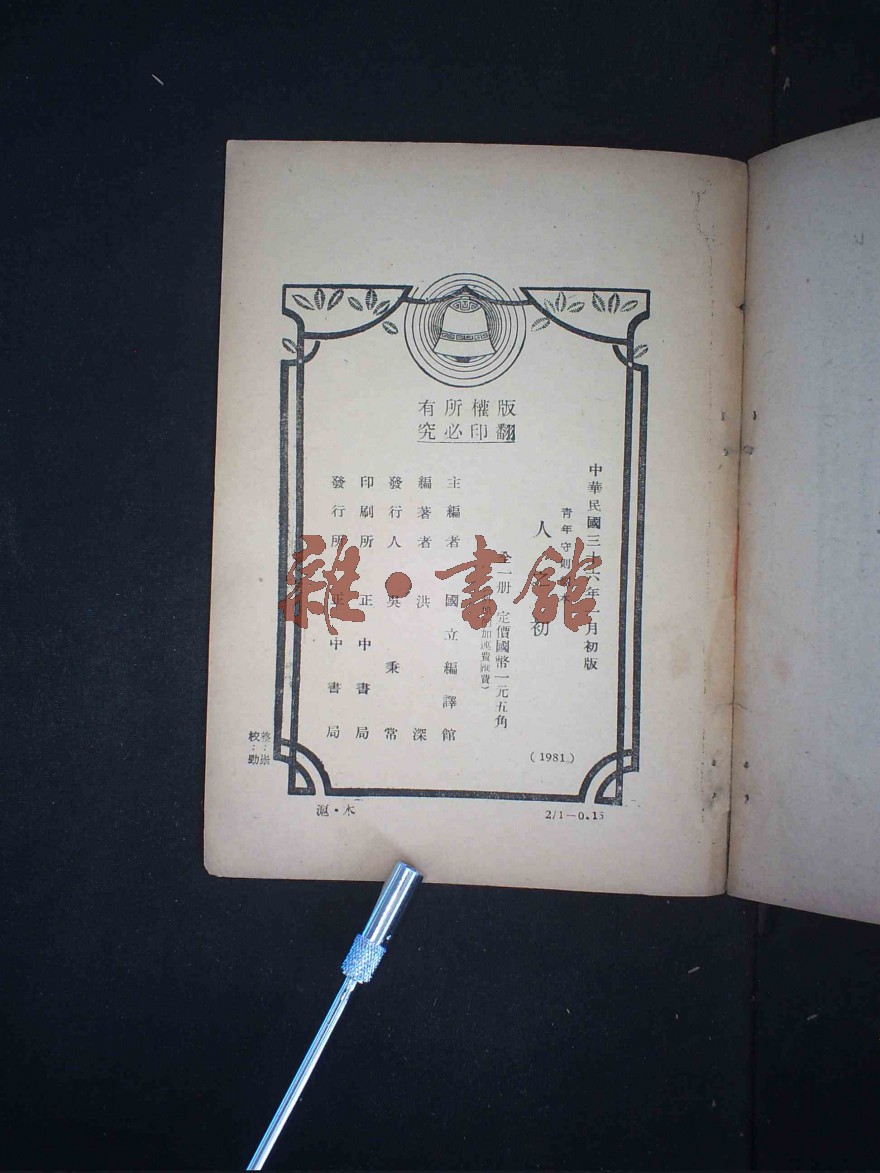 版權所有
翻印必究
中華民國三十六年一月初版
青年守則
人 初
全一册 定價國幣一元五角
加運費滙費)
主編者 國立編譯館
編著者 洪深
發行人 吳秉常
印刷所 正中書局
發行所 正中書局
(1981)
校:勁
滬·木
2/1—0.15
雜·書館